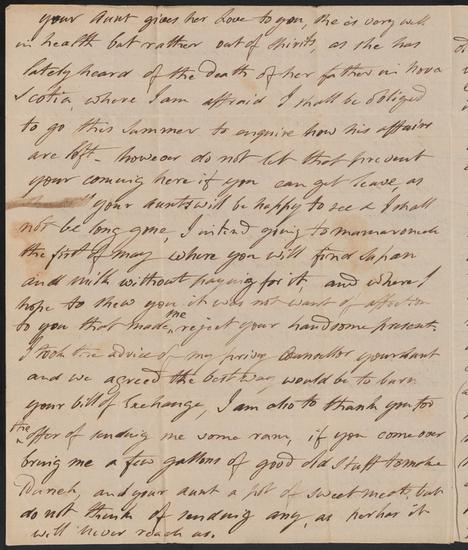 your Aunt gives her Love to you, she is very well
in health but rather out of spirits, as she has
lately heard of the Death of her father in Nova
Scotia, where I am affraid I shall be obliged
to go this Summer to enquire how his affairs
are left - however do not let that prevent
your coming here if you can get leave, as
your aunt will be happy to see &c I shall
not be long gone, I intend going to mamaroneck
the first of may where you will find
and milk without paying for it, and where I
hope to shew you it was not want of affection
to you that made me reject your handsome present.
I took the advice of my privy Councellor your Aunt
and we agreed the best way would be to burn
your bill of Exchange, I am also to thank you for
the offer of sending me some rum, if you come over
bring me a few gallons of good old Stuff to make
Punch, and your aunt a pot of sweet meat, but
do not think of sending any, as it
will never reach us.